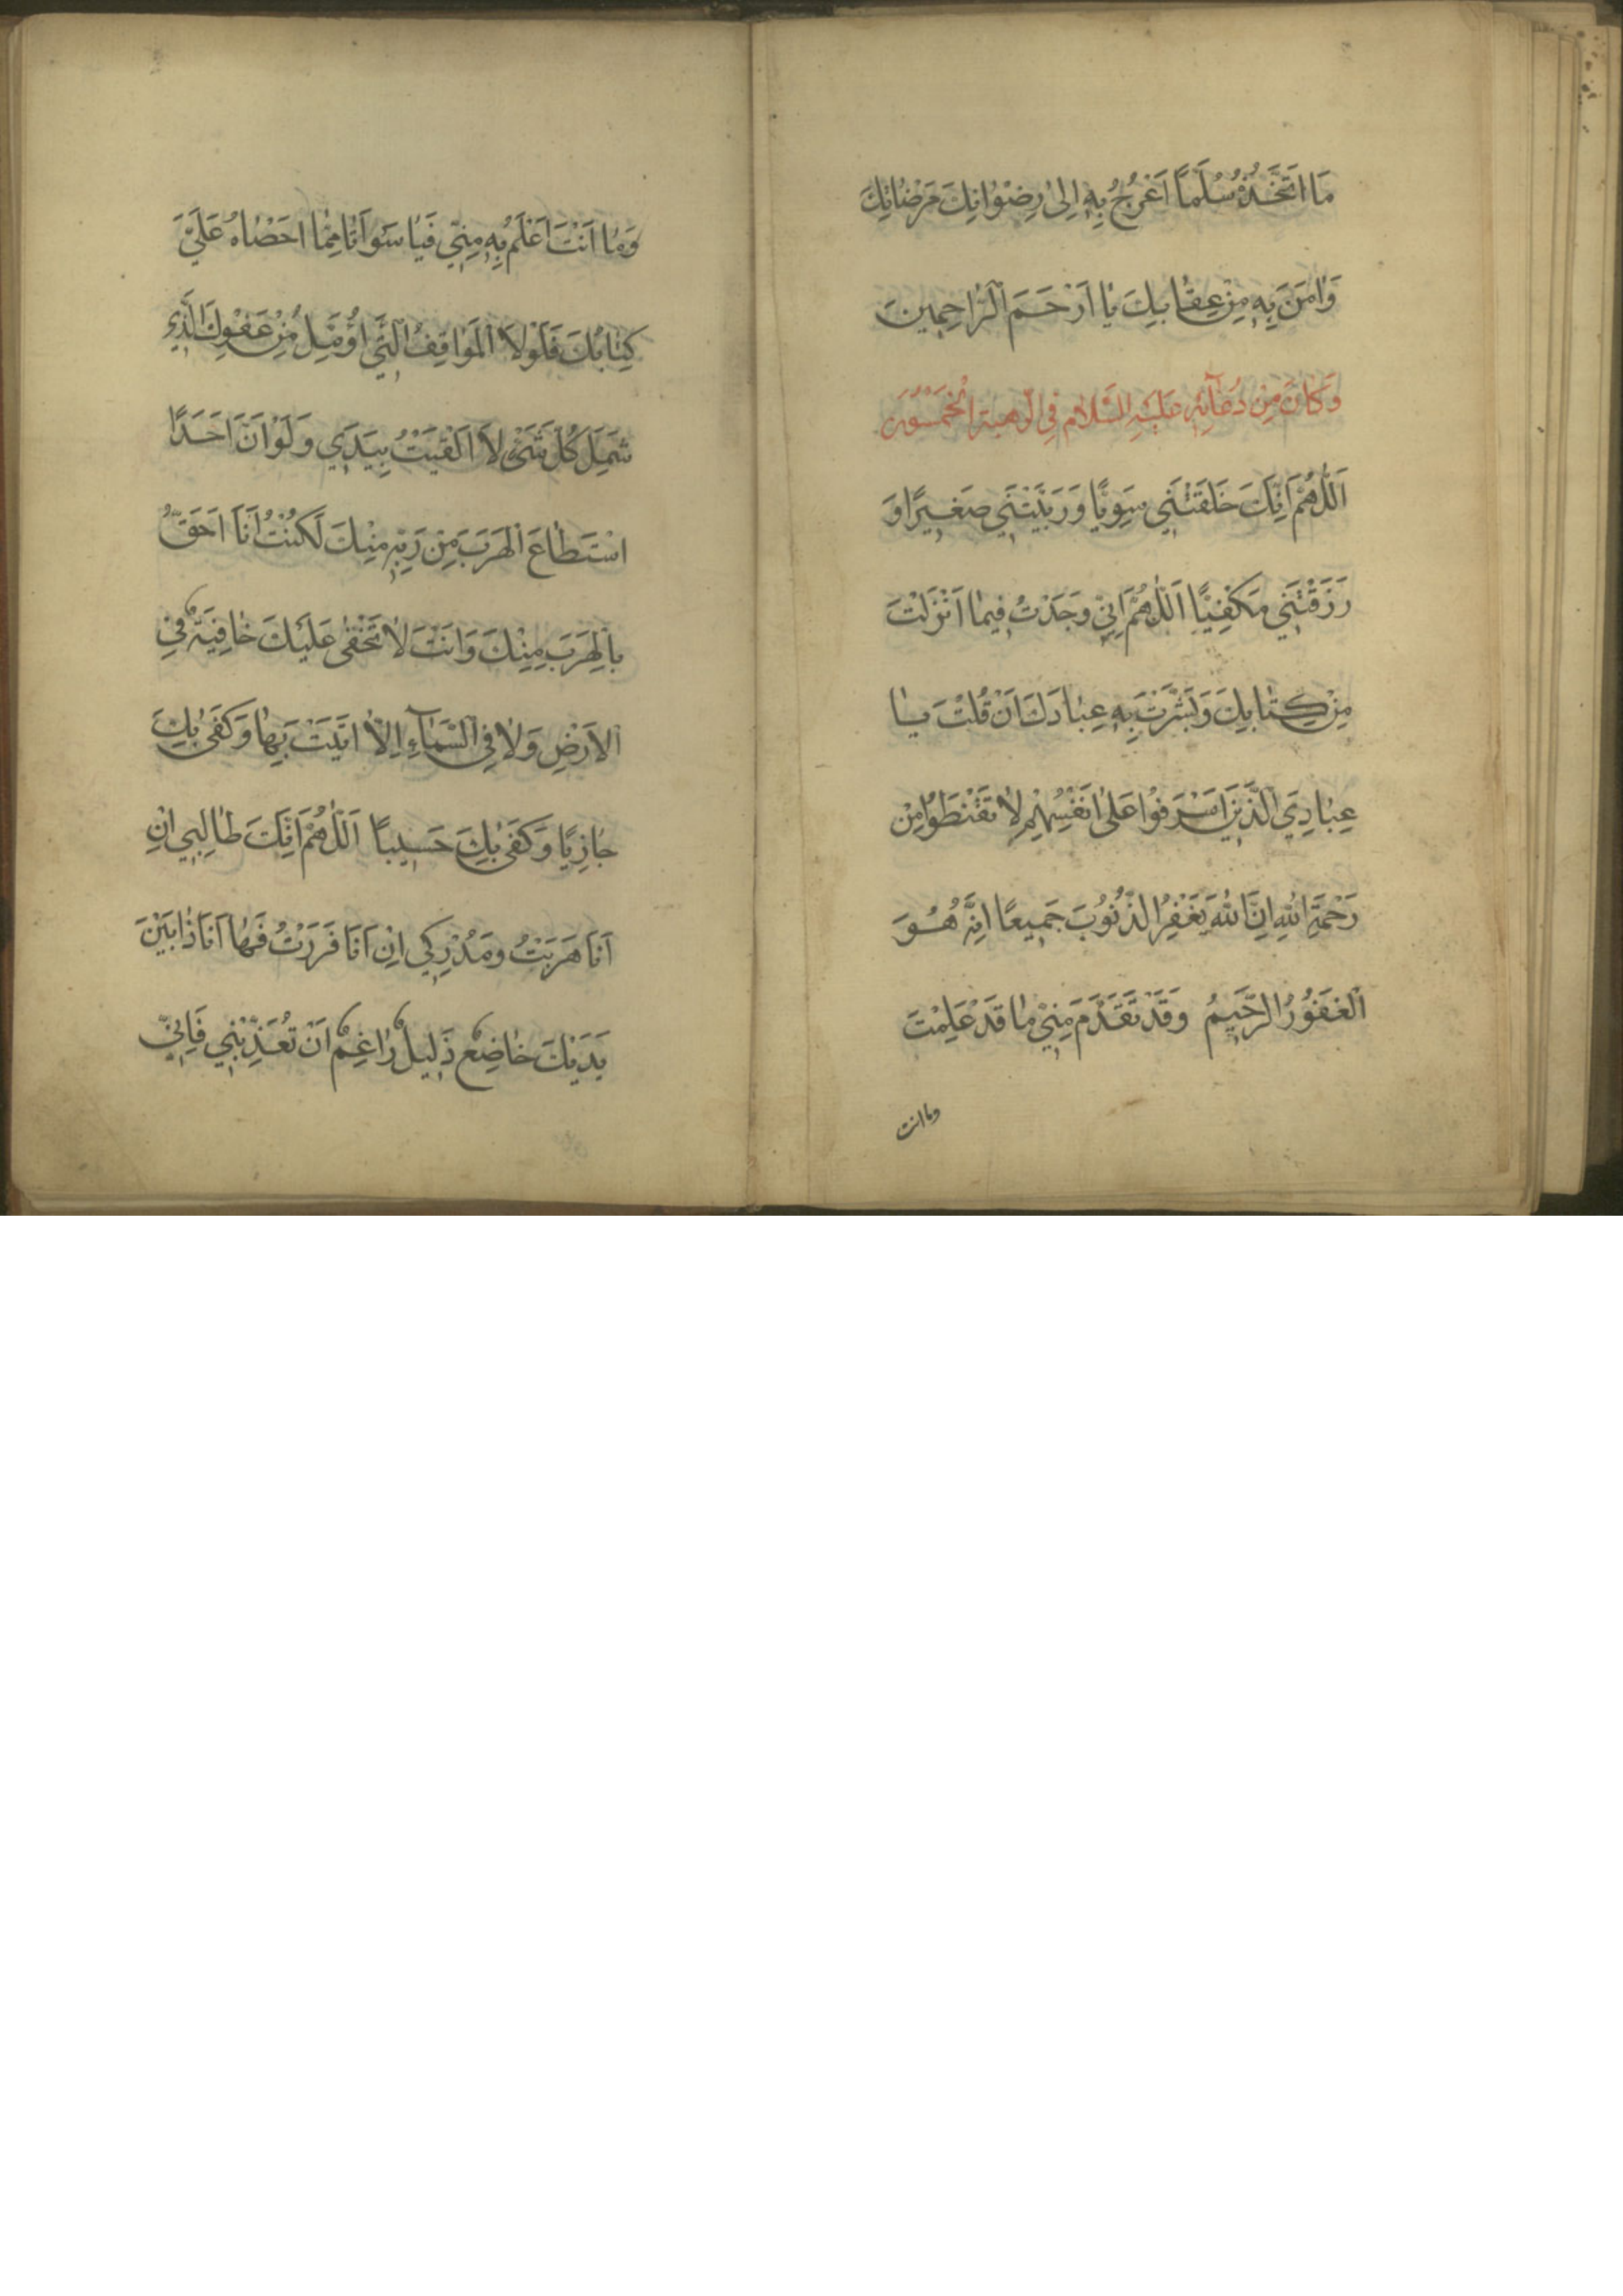 مَا اَتَّخِذُهُ سُلَّماً اَعْرُجُ بِهِ اِلىٰ رِضْوٰانِكَ مَرْضٰاتِكَ
وَاٰمَنَ بِهِ مِنْ عِقٰابِكَ يٰا اَرْحَمَ الرّٰاحِمِينَ
وَكٰانَ مِنْ دُعٰآئِهِ عَلَيْهِ السَّلاٰم فِي الرهبة
اَللّٰهُمَّ اِنَّكَ خَلَقْتَنِي سَوِيًّا وَرَبَّيْتَنِي صَغِيرًا وَ
رَزَقْتَنِي مَكْفِيًّا اَللّٰهُمَّ اِنِّي وَجَدْتُ فِيمٰا اَنْزَلْتَ
مِنْ كِتٰابِكَ وَبَشَّرْتَ بِهِ عِبٰادَكَ اَنْ قُلْتَ يٰا
عِبٰادِيَ الَّذِينَ اَسْرَفوُا عَلىٰ اَنْفُسِهِمْ لاٰ تَقْنَطوُا مِنْ
رَحْمَةِ اللهِ اِنَّ اللهَ يَغْفِرُ الذُّنوُبَ جَمِيعًا اِنَّهُ هُوَ
الْغَفوُرُ الرَّحِيمُ وَقَدْ تَقَدَّمَ مِنِّي مٰا قَدْ عَلِمْتَ
وما انت
وَمٰا اَنْتَ اَعْلَمُ بِهِ مِنِّي فَيٰا سَوْاَتٰا مِمّٰا اَحْصٰاهُ عَلَيَّ
كِتٰابُكَ فَلَوْلاَ الْمَوٰاقِفُ الَّتِي اُؤَمِّلُ مِنْ عَفْوِكَ الَّذِي
شَمِلَ كُلَّ شَيْءٍ لاَ اَلْقَيْتُ بِيَدِي وَلَوْ اَنَّ اَحَدًا
اسْتَطٰاعَ الْهَرَبَ مِنْ رَبِّهِ مِنْكَ لَكُنْتُ اَنَا اَحَقُّ
بِالْهَرَبِ مِنْكَ وَاَنْتَ لاٰ تَخْفىٰ عَلَيْكَ خٰافِيَةٌ فِي
الاَرْضِ وَلاٰ فِي السَّمٰآءِ اِلاّٰ اَتَيْتَ بِهٰا وَكَفىٰ بِكَ
جٰازِيًا وَكَفىٰ بِكَ حَسِيباً اَللّٰهُمَّ اِنَّكَ طٰالِبِي اِنْ
اَنَا هَرَبْتُ وَمُدْرِكِي اِنْ اَنَا فَرَرْتُ فَهٰا اَنَا ذٰا بَيْنَ
يَدَيْكَ خٰاضِعٌ ذَلِيلٌ رٰاغِمٌ اَنْ تُعَذِّبْنِي فَاِنِّي